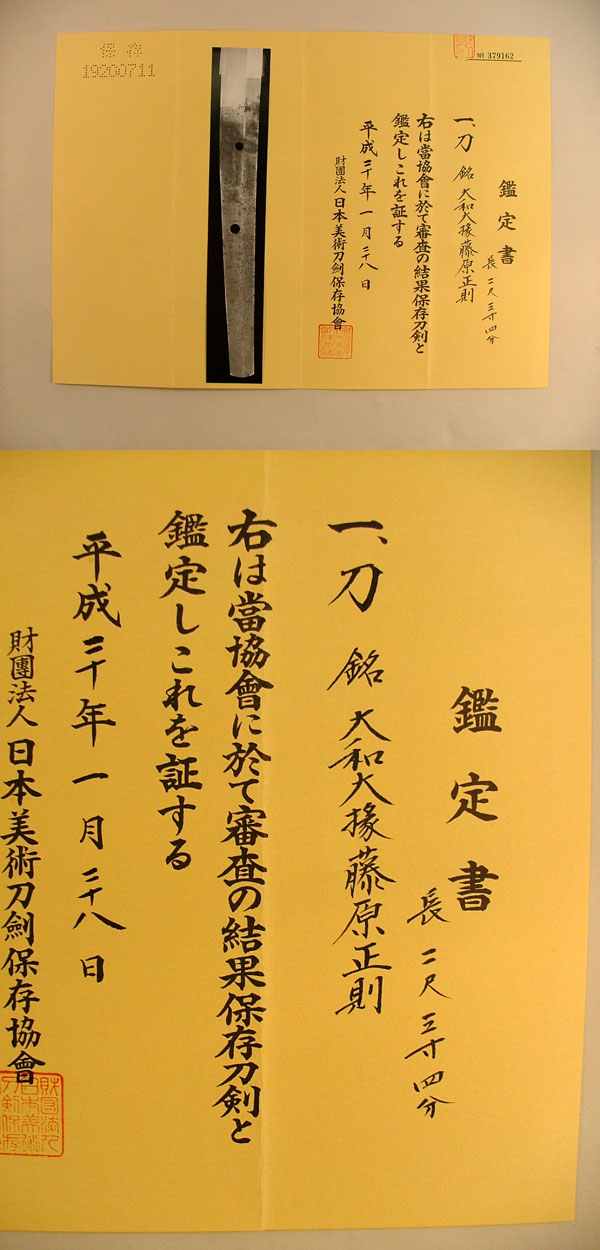 保存
19200711
№ 379162
鑑定書
一、刀 銘 大和大掾藤原正則
長二尺三寸四分
右は當協會に於て審査の結果保存刀剣と
鑑定しこれを証する
平成二十年一月二十八日
財團法人日本美術刀劍保存協會
鑑定書
一、刀 銘 大和大掾藤原正則
長二尺三寸四分
右は當協會に於て審査の結果保存刀剣と
鑑定しこれを証する
平成二十年一月二十八日
財團法人日本美術刀劍保存協會